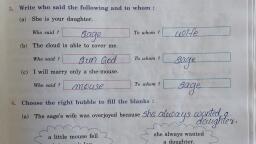 5. Write who said the following and to whom :
(a) She is your daughter.
Who said ? sage To whom ? wife
(b) The cloud is able to cover me.
Who said ? Sun God To whom ? sage
(c) I will marry only a she-mouse.
Who said ? mouse To whom ? sage
6. Choose the right bubble to fill the blanks :
(a) The sage's wife was overjoyed because she always wanted a
daughter.
a little mouse fell she always wanted
a daughter.